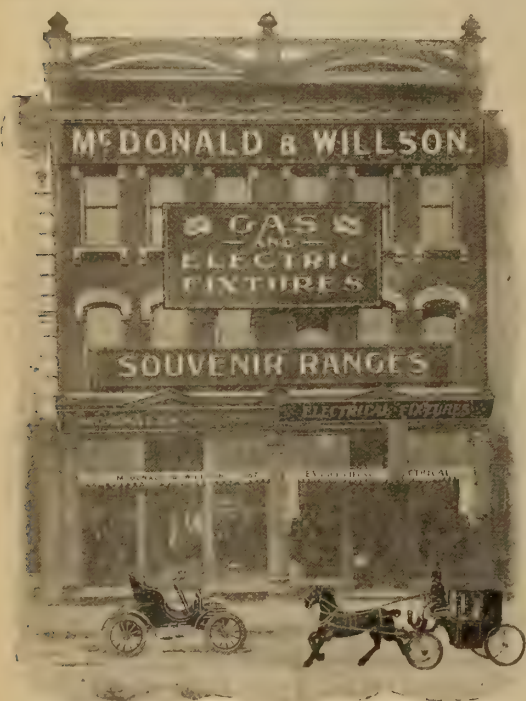 McDONALD & WILLSON.
GAS
AND
ELECTRIC
FIXTURES
SOUVENIR RANGES
ELECTRICAL FIXTURES